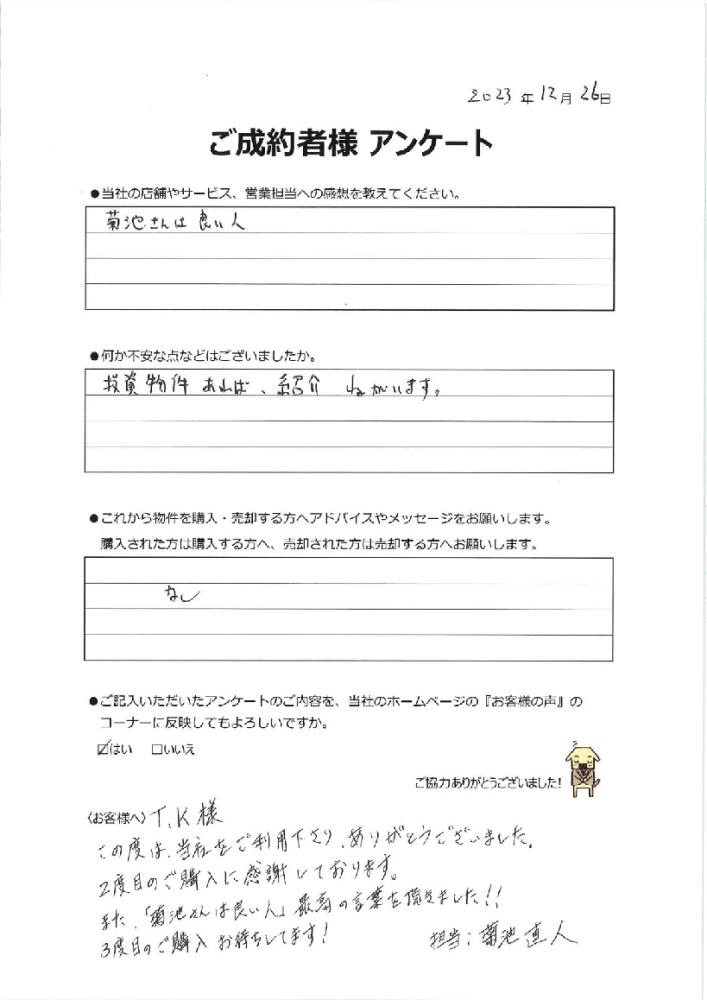 2023年12月26日
ご成約者様 アンケート
●当社の店舗やサービス、営業担当への感想を教えてください。
菊池さんは良い人
●何か不安な点などはございましたか。
投資物件あれば、紹介 ねがいます。
●これから物件を購入・売却する方へアドバイスやメッセージをお願いします。
購入された方は購入する方へ、売却された方は売却する方へお願いします。
なし
●ご記入いただいたアンケートのご内容を、当社のホームページの『お客様の声』の
コーナーに反映してもよろしいですか。
☑はい □いいえ
ご協力ありがとうございました!
〈お客様へ〉T.K様
この度は、当社をご利用下さり、ありがとうございました。
2度目のご購入に感謝しております。
また、「菊池さんは良い人」最高の言葉を頂きました!!
3度目のご購入お待ちしてます!
担当:菊池直人